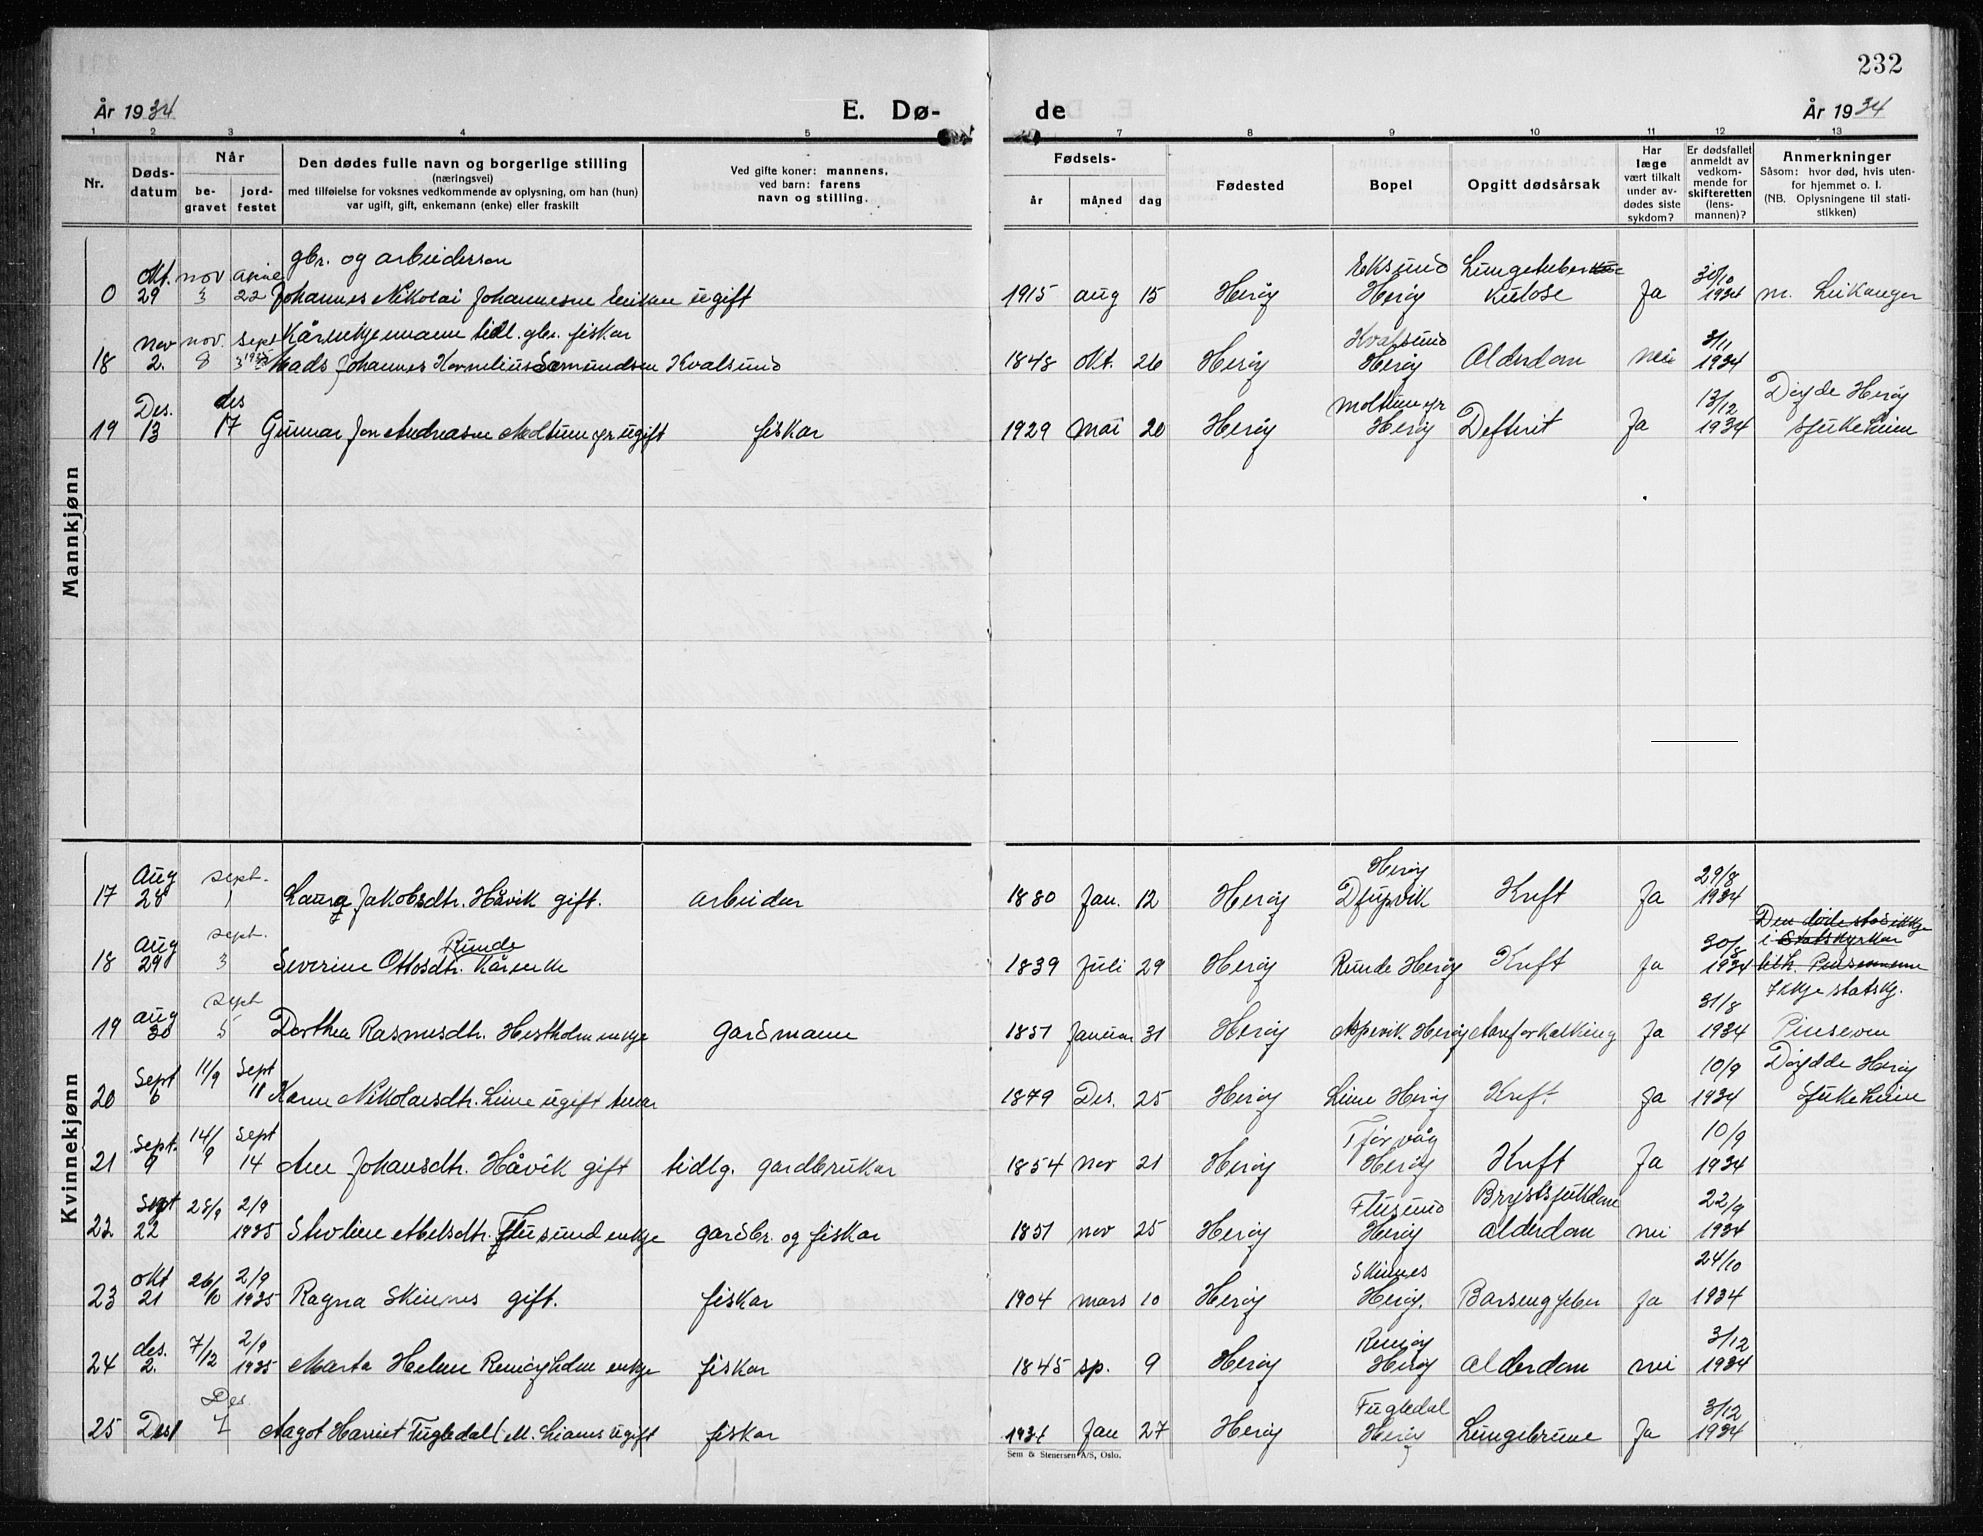 232
År 1934 E. Dø- de År 1934
1 2 3 4 5 7 8 9 10 11 12 13
Nr. Døds-datum Når be-gravet jord-festet Den dødes fulle navn og borgerlige stilling (næringsvei) med tilføielse for voksnes vedkommende av oplysning, om han (hun) var ugift, gift, enkemann (enke) eller fraskilt Ved gifte koner: mannens, ved barn: farens navn og stilling. Fødsels- år måned dag Fødested Bopel Opgitt dødsårsak Har læge vært tilkalt under av-dødes siste sykdom? Er dødsfallet anmeldt av vedkom-mende for skifteretten (lens-mannen)? Anmerkninger Såsom: hvor død, hvis uten-for hjemmet o. l. (NB. Oplysningene til stati-stikken)
Mannkjønn
gbr. og arbeiderson Eksund
0 Okt. 29 nov 3 22 Johannes Nikolai ugift 1915 aug 15 Herøy Herøy Ja 30/10 1934 m. Leikanger
tidl. gbr. fiskar Kvalsund
18 Nov 2. nov. 8 sept Mads Johannes Kornelius Sæmundsen Kvalsund 1848 Okt. 26 Herøy Herøy Alderdom nei 3/11 1934
19 Des. 13 des 17 Gunnar Jon Andreasen Moltumyr ugift fiskar 1929 mai 20 Herøy Moltumyr Herøy Defterit Ja 13/12 1934 Døyde Herøy sjukeheim
Kvinnekjønn
17 Aug 28 sept. 1 Laura Jakobsdtr. Håvik gift. arbeider 1880 Jan. 12 Herøy Herøy Djupvik Kreft Ja 29/8 1934
18 Aug 29 sept. 3 Severine Ottosdtr. Runde 1839 Juli 29 Herøy Runde Herøy Kreft Ja 30/8 1934 Den døde stod ikkje i Statskyrkja
19 aug 30 sept 5 Dorthea Rasmusdtr. Hestholm enkje gardmann 1851 Januar 31 Herøy Aspevik Herøy Aareforkalking Ja 31/8 1934 Ikkje statskj. Pinseven
20 Sept 6 11/9 Sept 11 Karen Nikolaisdtr. Leine ugift 1879 Des. 25 Herøy Leine Herøy Kreft Ja 10/9 1934 Døydde Herøy Sjukeheim
21 Sept. 9 14/9 Sept 14 Ane Johansdtr. Håvik gift tidlg. gardbrukar 1854 nov 21 Herøy Tjørvåg Herøy Kreft Ja 10/9 1934
22 Sept 22 28/9 2/9 1935 Abelsdtr. Flusund enkje gardbr. og fiskar 1851 nov 25 Herøy Flusund Herøy alderdom nei 22/9 1934
23 okt 21 26/10 2/9 1935 Ragna Skinnes gift. fiskar 1904 mars 10 Herøy Skinnes Herøy. Barsengfeber Ja 24/10 1934
24 des. 2. 7/12 2/9 1935 Marta Helene Remøyholm enkje fiskar 1845 sp. 9 Herøy Remøy Herøy alderdom nei 3/12 1934
25 Des 1 Des 7 Aagot Harriet Fugledal ugift fiskar 1934 Jan 27 Herøy Fugledal Herøy Lungebrune Ja 3/12 1934
Sem & Stenersen A/S, Oslo.